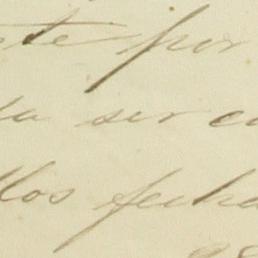 ste por
da ser co
llos fecha